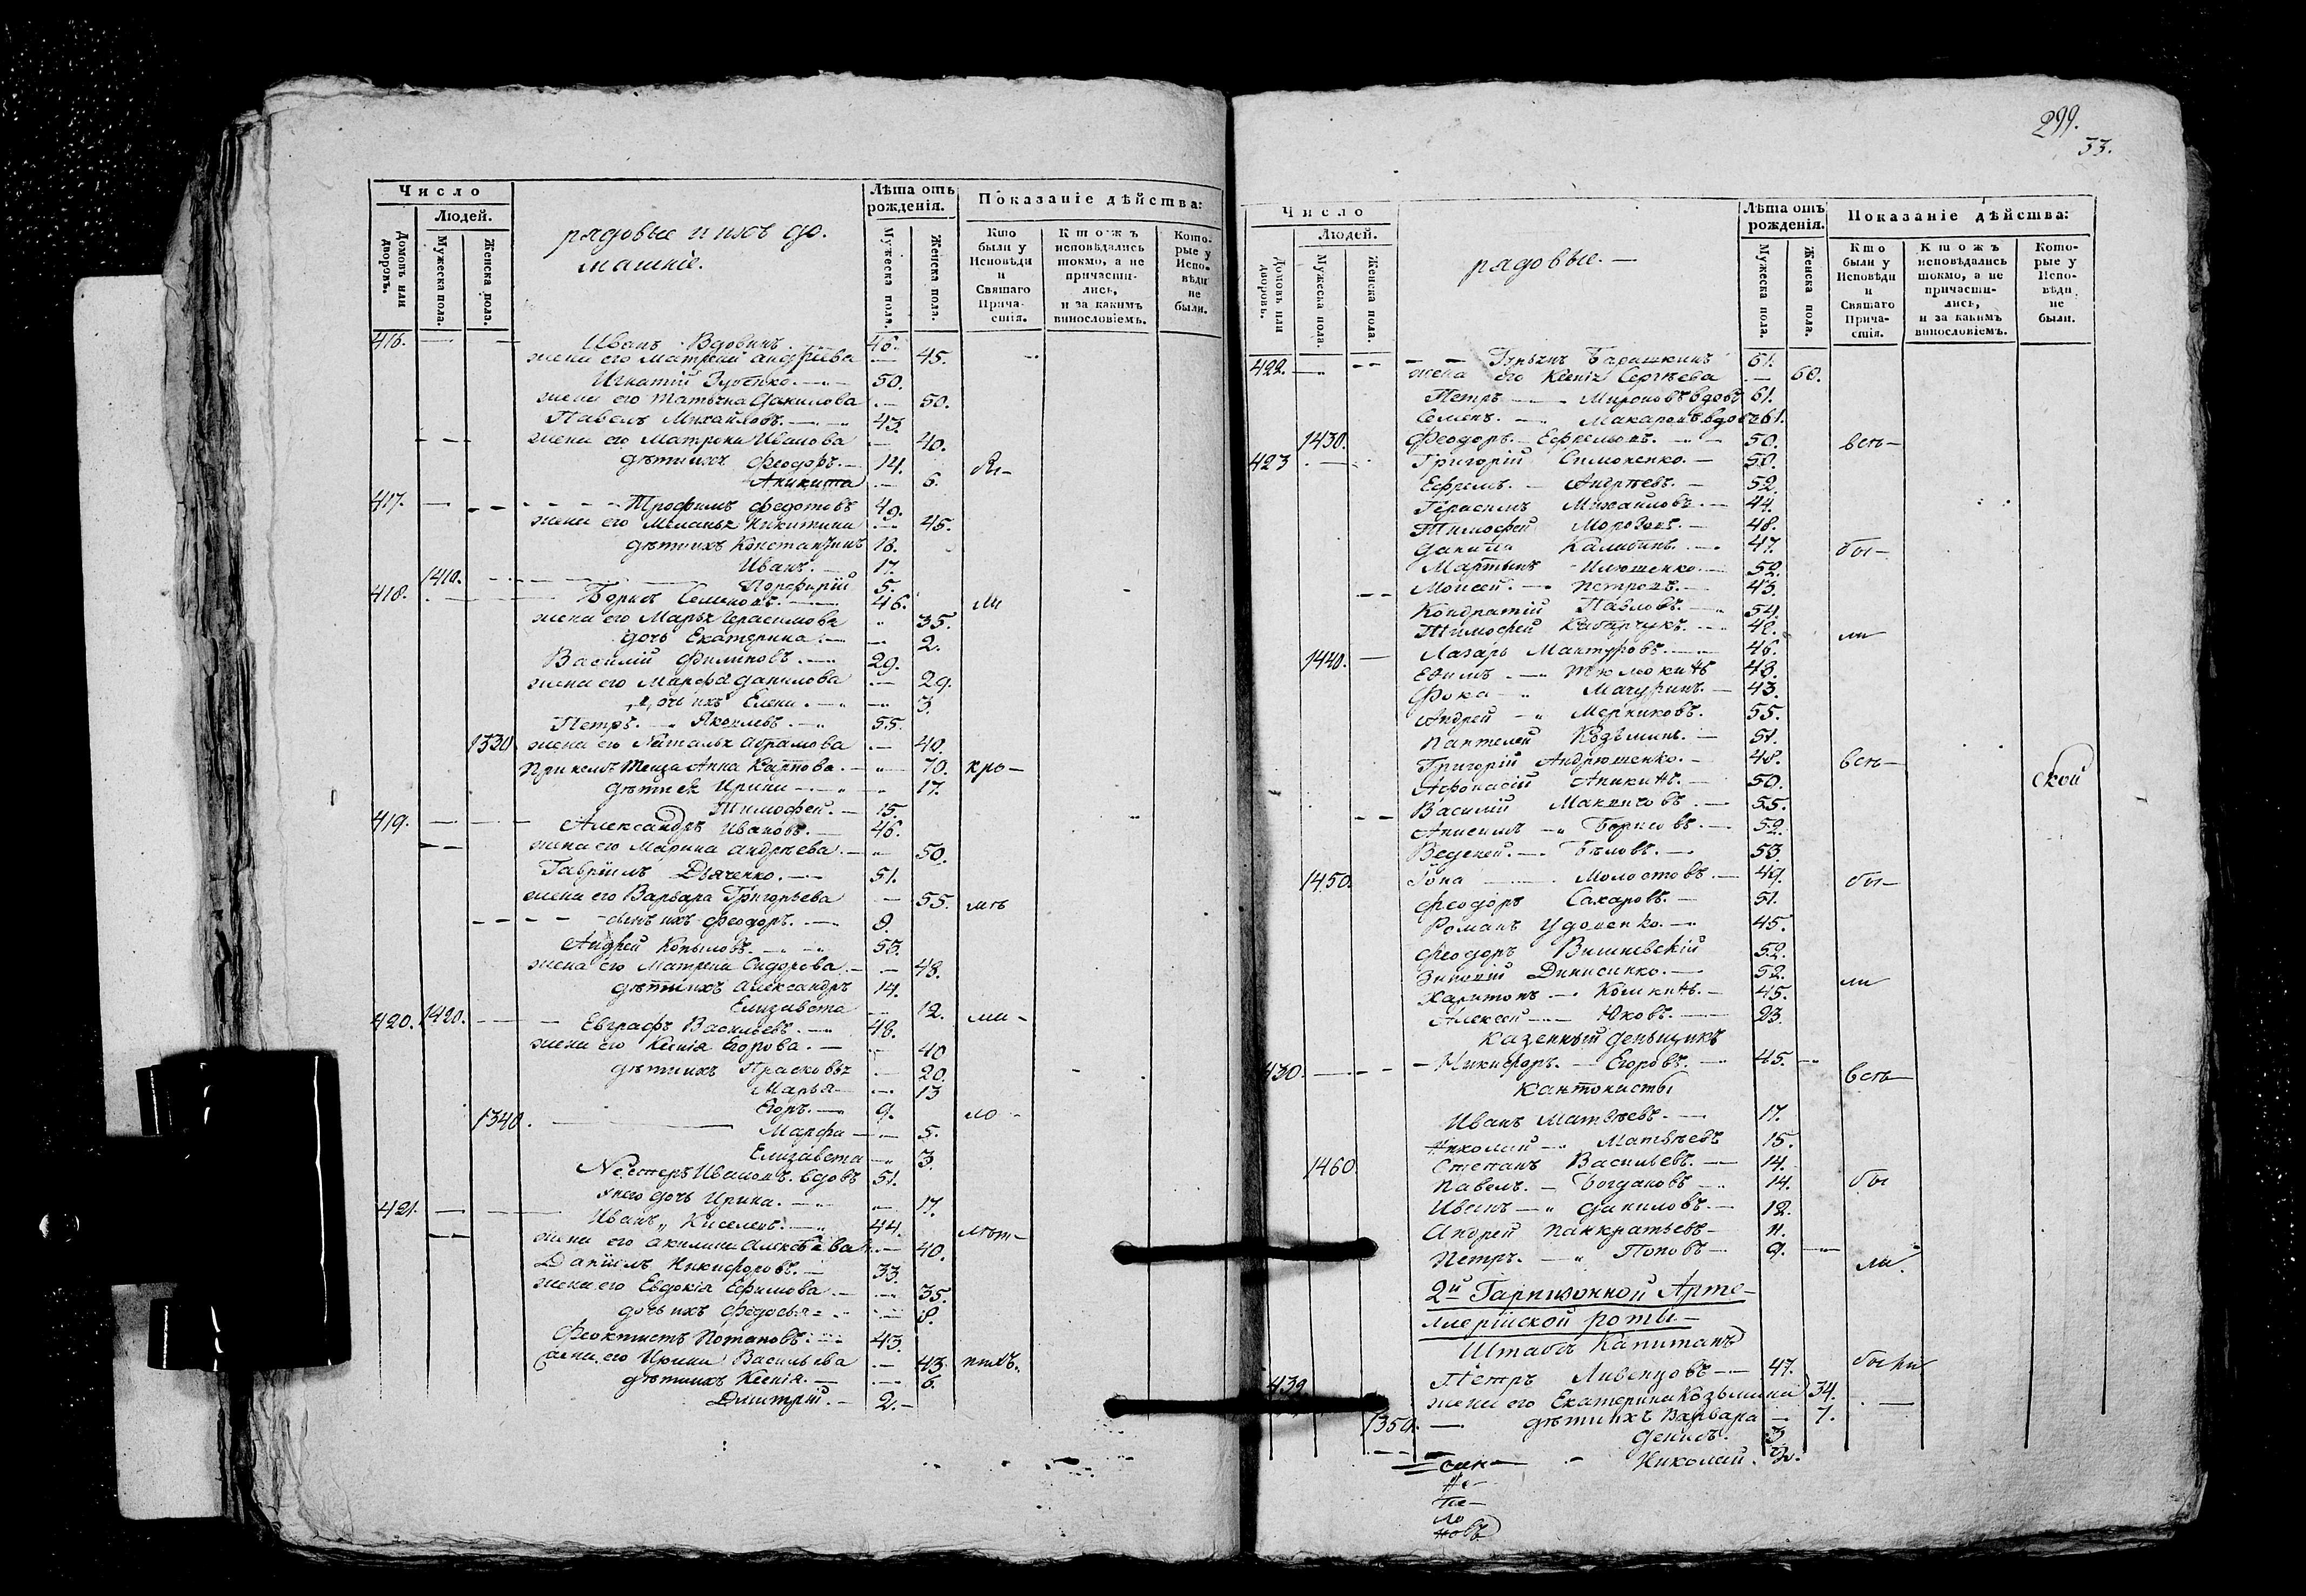 Число
Людей.
Домовъ или дворовъ.
Мужеска пола.
Женска пола.
рядовые и ихъ до-
машніе.
Лѣта отъ рожденія.
Мужеска пола.
Женска пола.
Показаніе дѣйства:
Кто были у Исповѣди и Святаго Прича- стія.
Ктожъ исповѣдались токмо, а не причасти- лись, и за какимъ винословіемъ.
Кото- рые у Испо- вѣди не были.
416. Иванъ Вдовинъ 46.
жена его Матрена Андрѣева 45.
Игнатій Зубенко. 50.
жена его Татьяна Данилова 50.
Павелъ Михайловъ. 43.
жена его Матрона Иванова 40.
дѣти ихъ Феодоръ. 14.
Аникита 6.
417. Трофимъ Федотовъ 49.
жена его Меланья Никитина 45.
дѣти ихъ Константинъ 18.
Иванъ. 17.
1410. Порфирій 5.
418. Борисъ Семеновъ. 46. ли
жена его Марья Герасимова 35.
дочь Екатерина. 2.
Василій Филиповъ. 29.
жена его Марфа Данилова 29.
дочь ихъ Елена. 3.
Петръ. Яковлевъ. 55.
1330 жена его Наталья Абрамова 40.
При немъ теща Анна Карпова. 70. кро-
дѣти ея Ирина 17.
Тимофей. 15.
419. Александръ Ивановъ. 46.
жена его Марина Андрѣева. 50.
Гавріилъ Дьяченко. 51.
жена его Варвара Григорьева 55. мѣ
сынъ ихъ Феодоръ. 9.
Андрей Копыловъ. 53.
жена его Матрена Сидорова. 48.
дѣти ихъ Александръ 14.
Елизавета 12.
420. 1420. Евграфъ Васильевъ. 48.
жена его Ксенія Егорова. 40
дѣти ихъ Прасковья 20.
Марья 13
Егоръ. 9. ло
1340. Марфа 5.
Елизавета 3.
Нестеръ Ивановъ. вдовъ 51.
у него дочь Ирина. 17.
421. Иванъ Киселевъ. 44.
жена его Акилина Алексѣева 40.
Даніилъ Никифоровъ. 33.
жена его Евдокія Ефимова. 35.
дочь ихъ Федосья 8.
Феоктистъ Потаповъ. 43.
жена его Ирина Васильева 43.
дѣти ихъ Ксенія. 6.
Дмитрій. 2.
299.
33.
Число
Людей.
Домовъ или дворовъ.
Мужеска пола.
Женска пола.
рядовые.
Лѣта отъ рожденія.
Мужеска пола.
Женска пола.
Показаніе дѣйства:
Кто были у Исповѣди и Святаго Прича- стія.
Ктожъ исповѣдались шокмо, а не причасти- лись, и за какимъ винословіемъ.
Кото- рые у Испо- вѣди не были.
422. 61.
жена его Ксенія Сергѣева 60.
Петръ Мироновъ вдовъ 61.
Семенъ. Макаровъ вдовъ 61.
1430. Феодоръ. Ефремовъ. 50. всѣ
423 Григорій Симоненко. 50.
Ефремъ. Андрѣевъ. 52.
Герасимъ Михайловъ. 44.
Тимофей Морозовъ. 48.
Данила Калининъ. 47. бы-
Мартынъ Илюшенко. 52.
Моисей. Петровъ. 43.
Кондратій Павловъ. 54.
Тимофей 42.
1440. Лазарь Мантуровъ. 46. ли
Ефимъ. Тюлюкинъ 48.
Фока Мачуринъ. 43.
Андрей Мерниковъ. 55.
Пантелей Кузьминъ. 51.
Григорій Андрюшенко. 48. всѣ
Афонасій Аникинъ. 50. ской
Василій 55.
Анисимъ Борисовъ. 52.
Веденей. Бѣловъ. 53.
1450. Іона Молостовъ. 49. бы-
Феодоръ Сахаровъ. 51.
Романъ Удовенко. 45.
Феодоръ Вишневскій 52.
Зиновій Динисенко. 52.
Харитонъ Комкинъ. 45. ли
Алексей Юковъ. 23.
Казенный деньщикъ
430. Никифоръ. Егоровъ. 45.
Кантонисты всѣ
Иванъ Матвѣевъ. 17.
Николай Матвѣевъ 15.
1460. Степанъ Васильевъ. 14.
Павелъ. Богдановъ 14. бы
Иванъ Даниловъ. 12.
Андрей Панкратьевъ 11.
Петръ. Поповъ 9.
ли
2й Гарнизонной Арти-
лерійской роты.
Штабсъ Капитанъ
Петръ Ливенцовъ 47.
жена его Екатерина Козьмина 34.
1350. дѣти ихъ Варвара 7.
Денисъ. 3
Николай. 2.